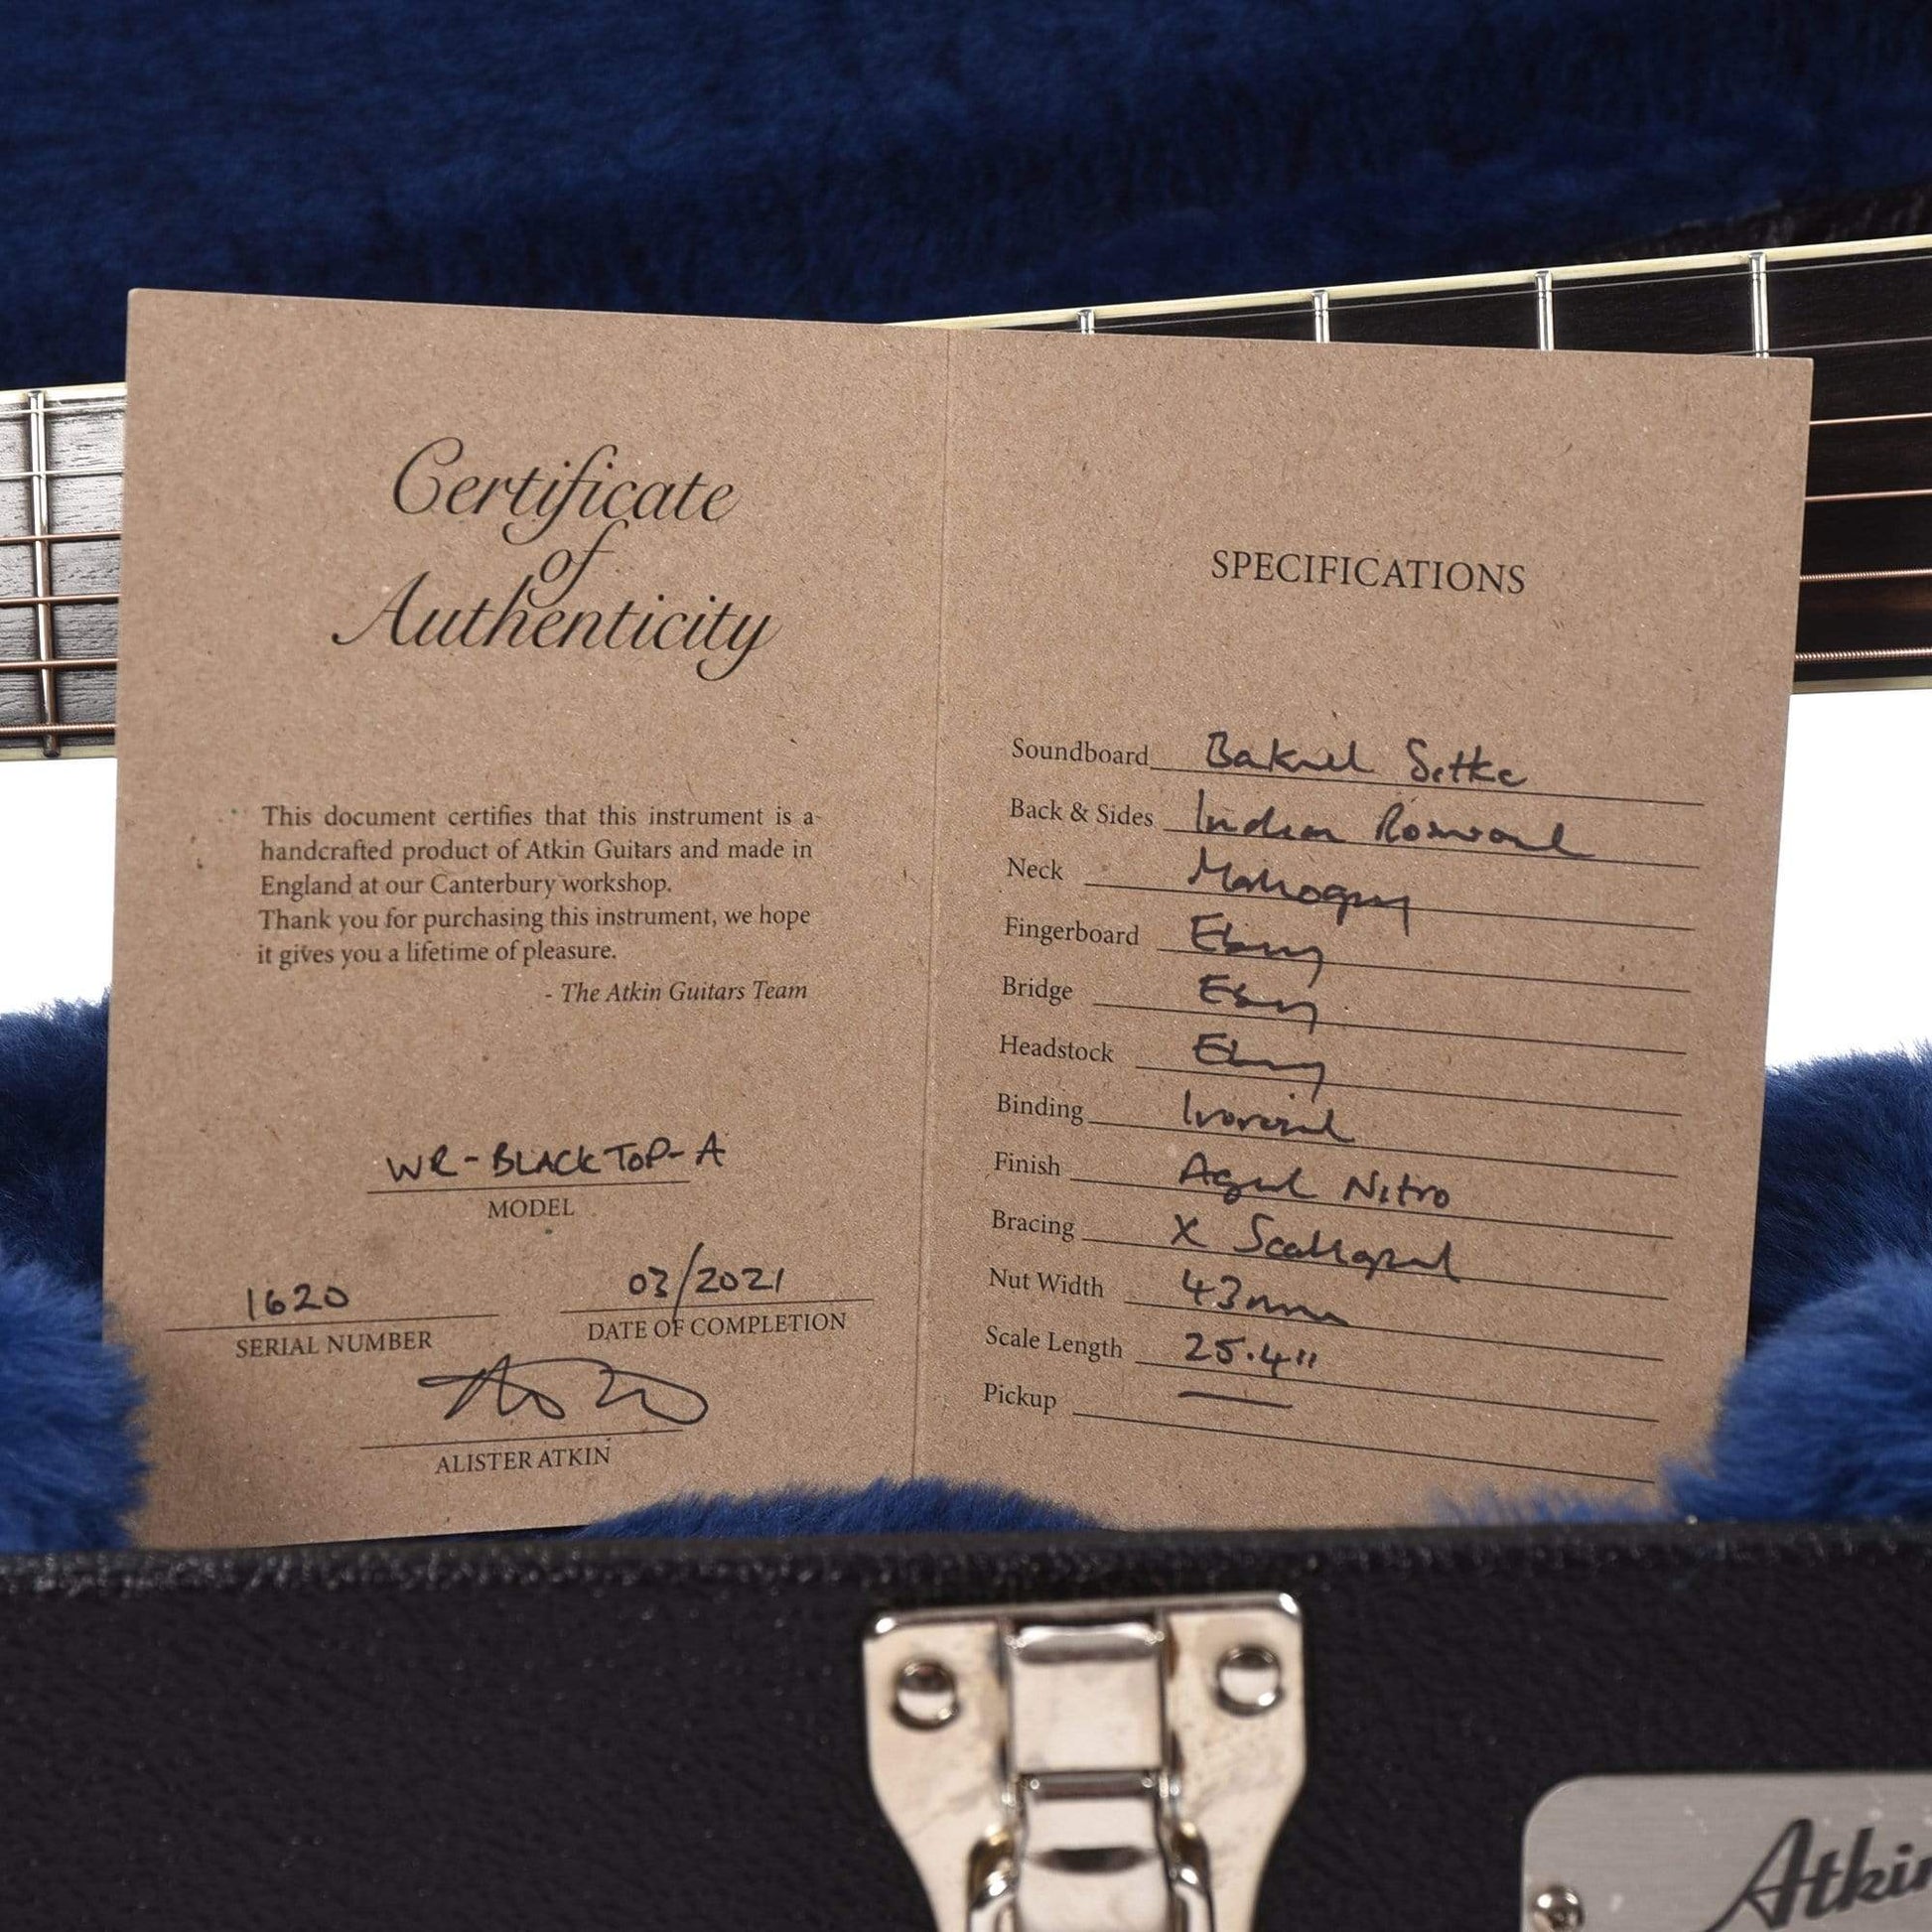 Certificate
of
Authenticity
This document certifies that this instrument is a
handcrafted product of Atkin Guitars and made in
England at our Canterbury workshop.
Thank you for purchasing this instrument, we hope
it gives you a lifetime of pleasure.
- The Atkin Guitars Team
WR-BLACKTOP-A
MODEL
1620
SERIAL NUMBER
03/2021
DATE OF COMPLETION
ALISTER ATKIN
SPECIFICATIONS
Soundboard Baked Sitka
Back & Sides Indian Rosewood
Neck Mahogany
Fingerboard Ebony
Bridge Ebony
Headstock Ebony
Binding Ivoroid
Finish Aged Nitro
Bracing X Scalloped
Nut Width 43mm
Scale Length 25.4"
Pickup —
Atkin